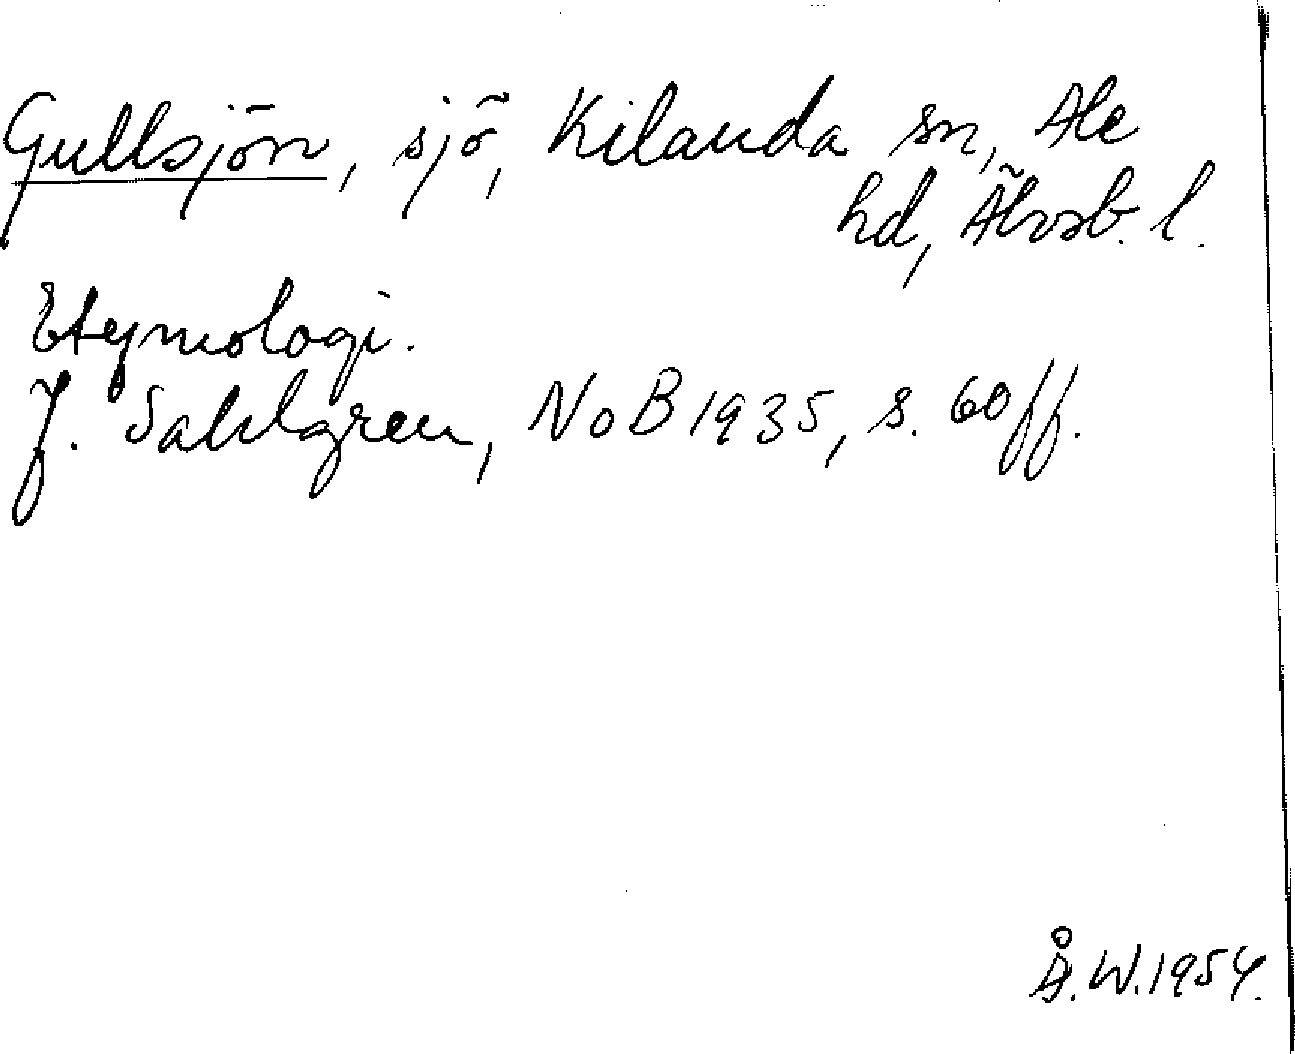 Gullsjön, sjö, Kilanda sn, Ale
hd, Älvsb. l.
Etymologi.
J. Sahlgren, NoB 1935, s. 60 ff.
Å.W. 1954.